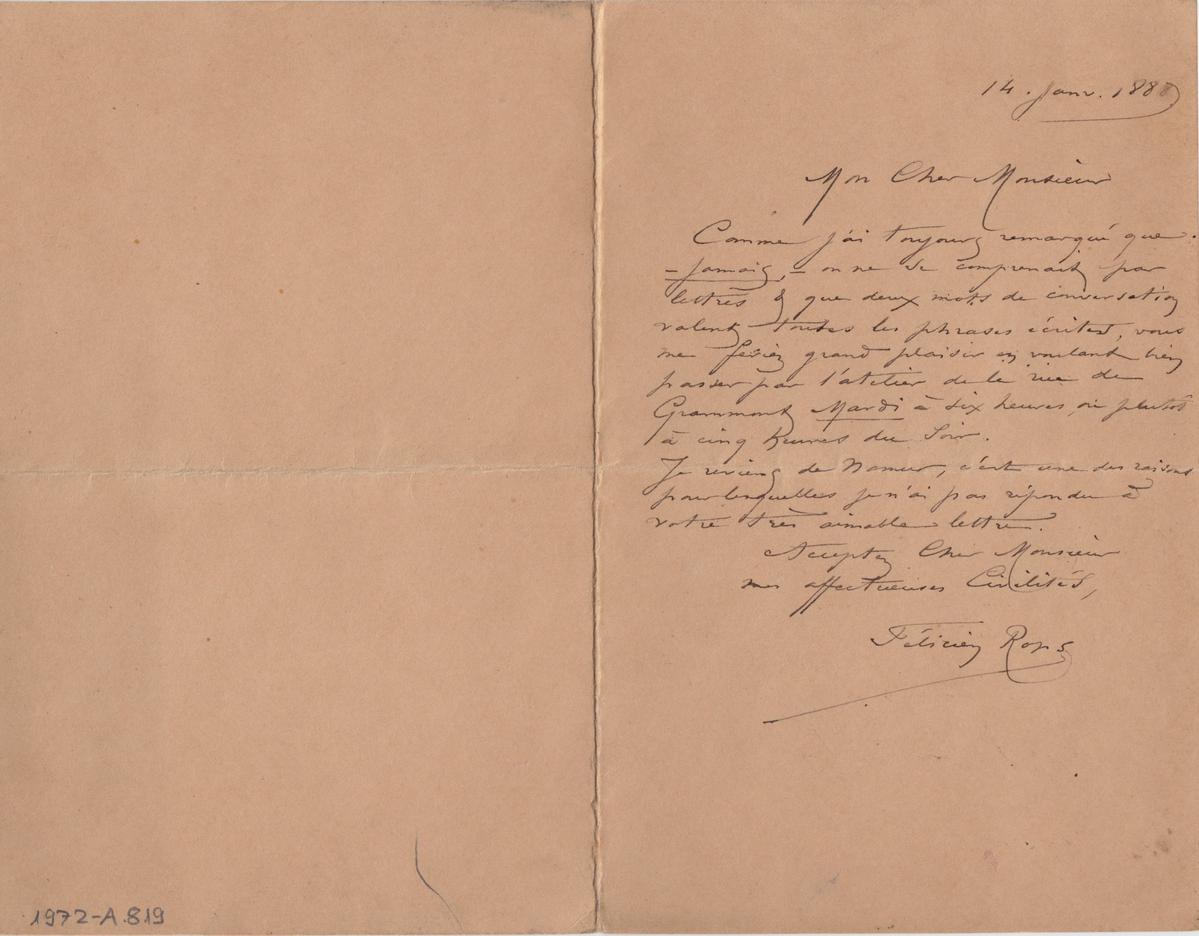 14. Janv. 188
Mon Cher Monsieur
Comme j'ai toujours remarqué que
– jamais, – on ne se comprenait par
lettres & que deux mots de conversation
valent toutes les phrases écrites, vous
me feriez grand plaisir en voulant bien
passer par l'atelier de la rue de
Grammont Mardi à six heures, ou plutôt
à cinq heures du Soir.
Je reviens de Namur, c'est une des raisons
pour lesquelles je n'ai pas répondu à
votre très aimable lettre.
Acceptez Cher Monsieur
mes affectueuses Civilités,
Félicien Rops
1972-A.819